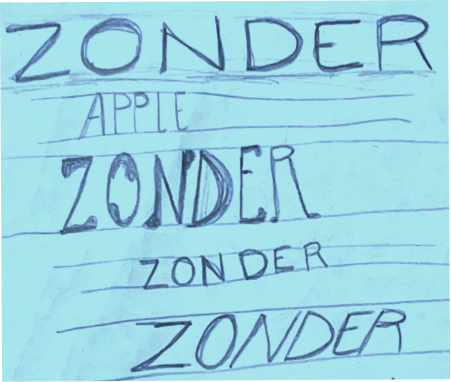 ZONDER
APPLE
ZONDER
ZONDER
ZONDER